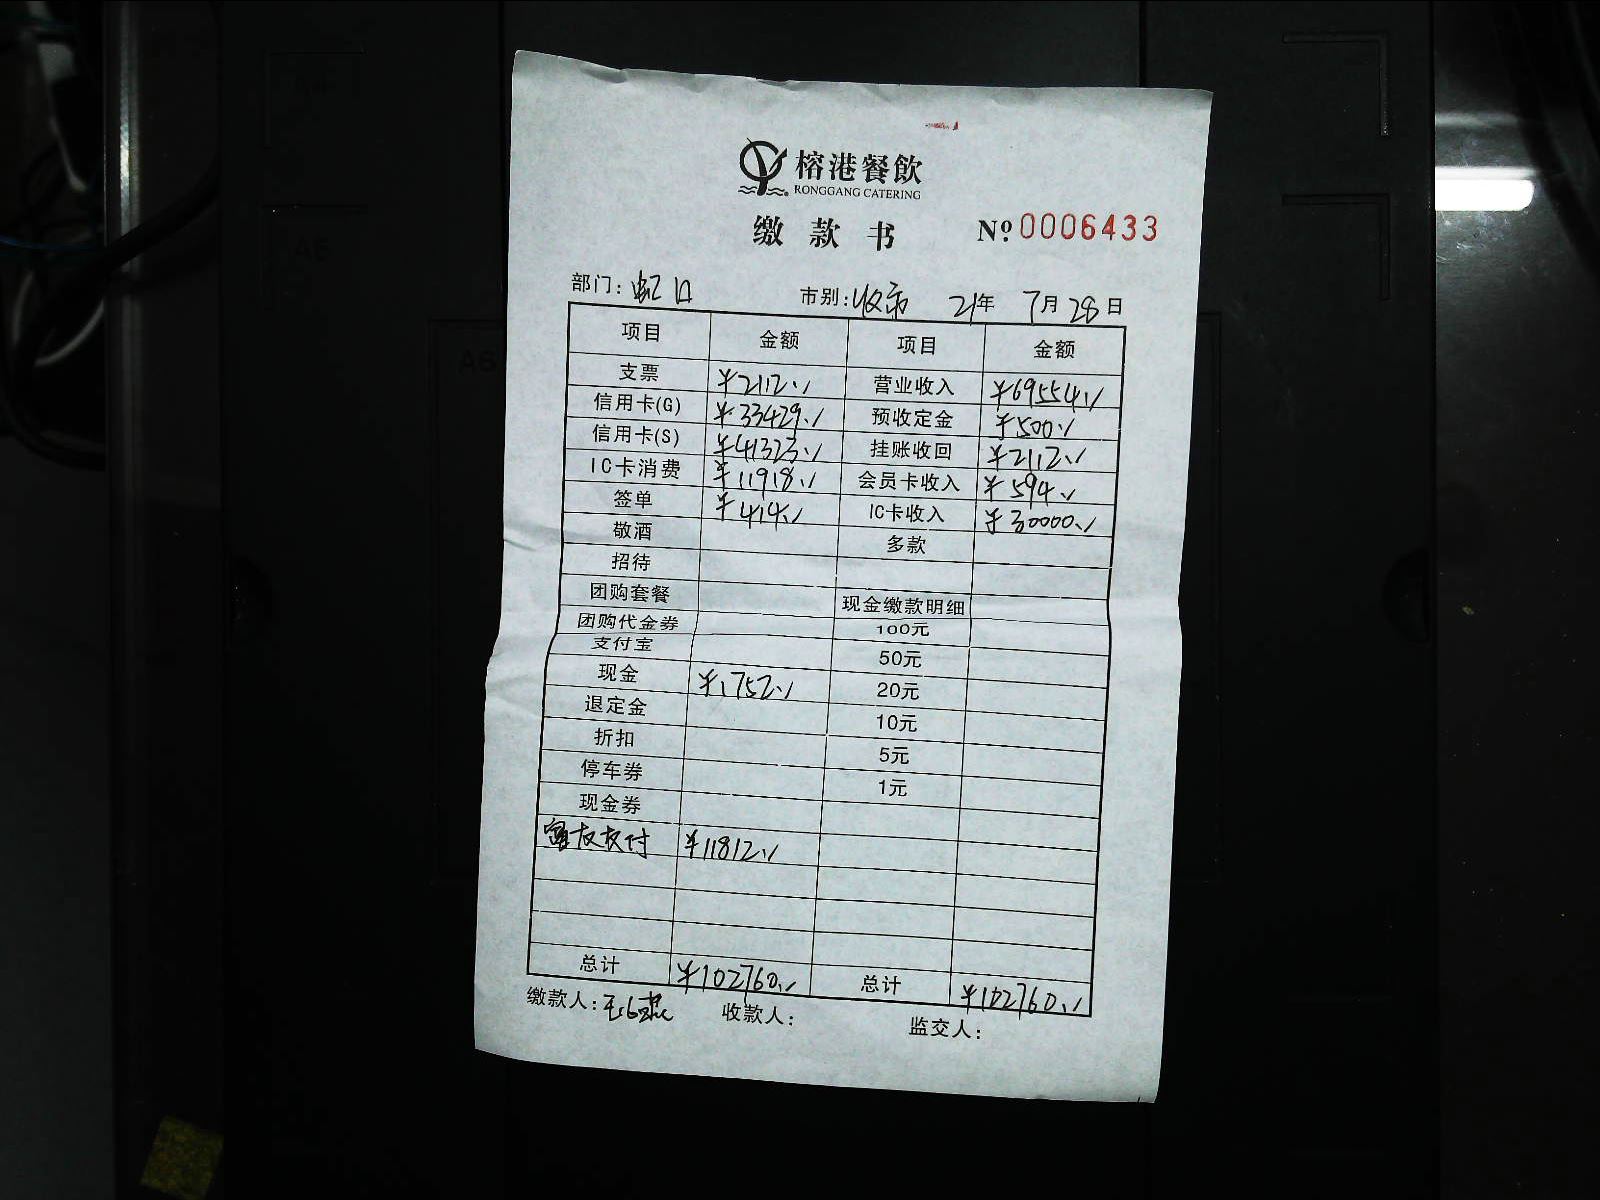 榕港餐飲
RONGGANG CATERING
缴款书 Nº 0006433
部门: 虹口 市别: 收市 21年 7月 28日
项目 金额 项目 金额
支票 ¥2112.√ 营业收入 ¥69554.√
信用卡(G) ¥33429.√ 预收定金 ¥500.√
信用卡(S) ¥41323.√ 挂账收回 ¥2112.√
IC卡消费 ¥11918.√ 会员卡收入 ¥594.√
签单 ¥414.√ IC卡收入 ¥30000.√
敬酒 多款
招待
团购套餐 现金缴款明细
团购代金券 100元
支付宝 50元
现金 ¥1752.√ 20元
退定金 10元
折扣 5元
停车券 1元
现金券
富友支付 ¥11812.√
总计 ¥102760.√ 总计 ¥102760.√
缴款人: 收款人: 监交人: